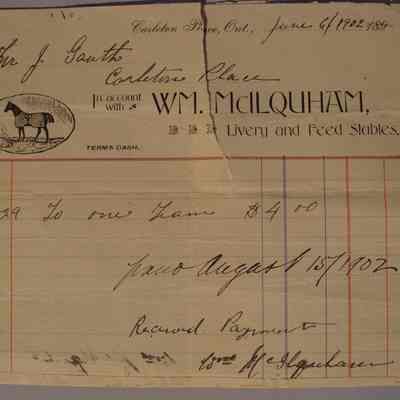 Carleton Place, Ont., June 6/1902 189
Mr J. Gauth
Carleton Place
In account with WM. McILQUHAM,
Livery and Feed Stables.
TERMS CASH.
29 To one Team $4 00
paid August 15/1902
Received Payment
Wm McIlquham